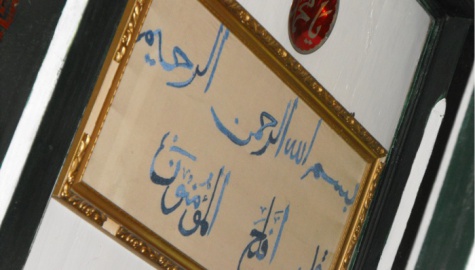 بسم الله الرحمن الرحيم
قد افلح المؤمنون